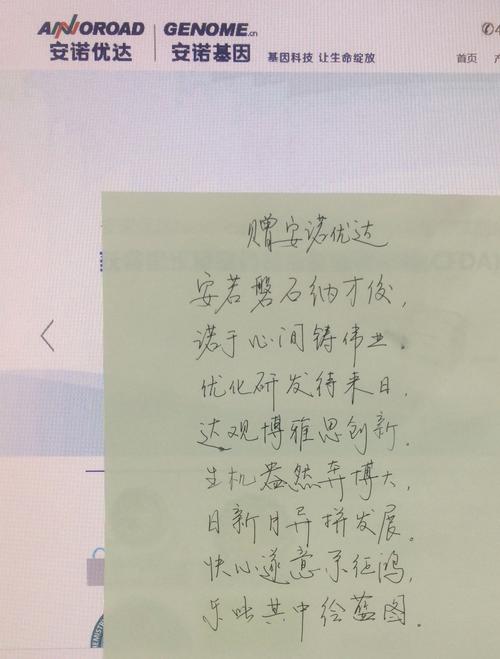 ANNOROAD GENOME.cn
安诺优达 安诺基因 基因科技 让生命绽放
首页
赠安诺优达
安若磐石纳才俊,
诺于心间铸伟业.
优化研发待来日,
达观博雅思创新.
生机盎然奔博大,
日新月异拼发展.
快心遂意示征鸿,
乐呔其中绘蓝图.